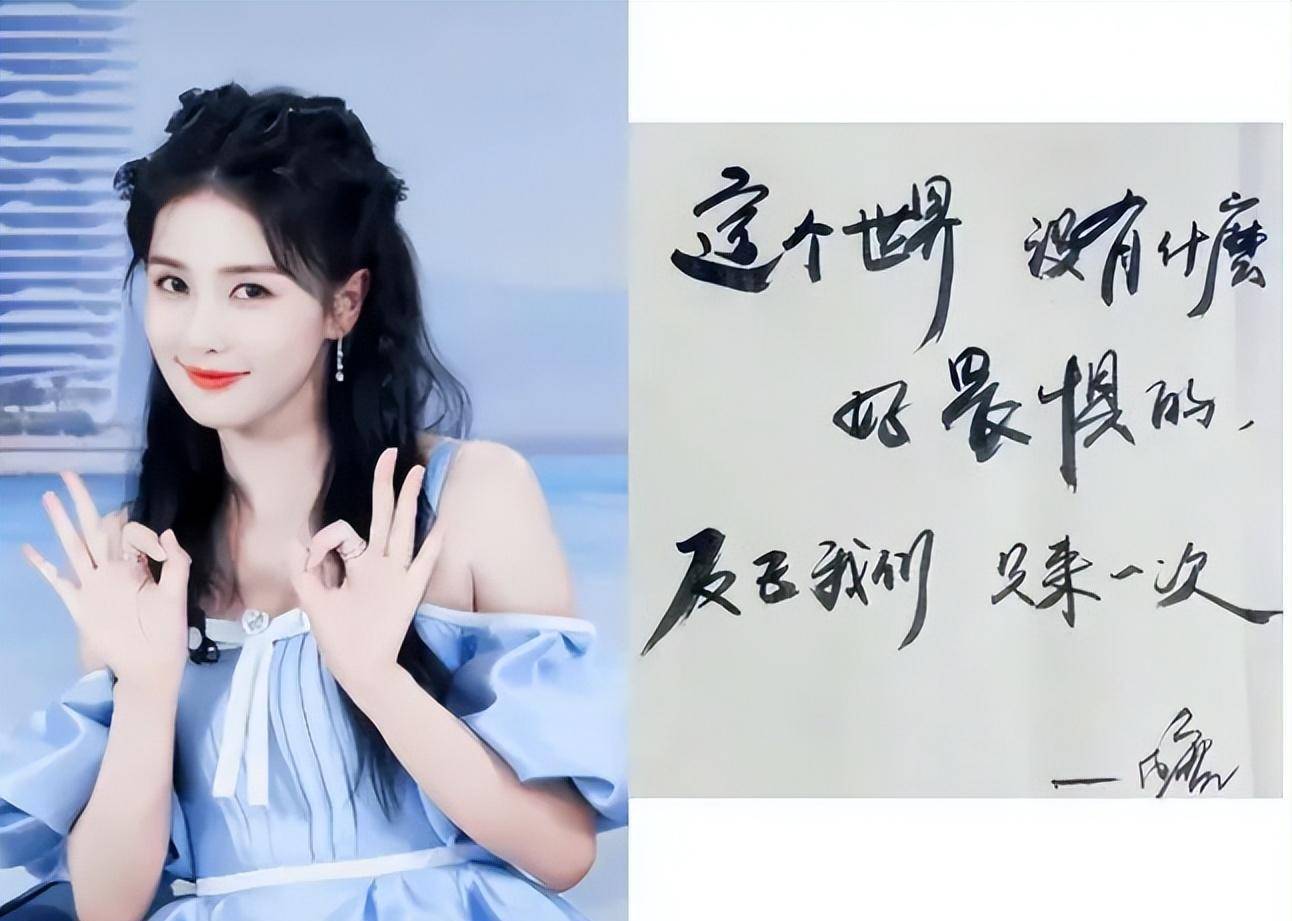 这个世界 没有什麼
好畏惧的,
反正我们 只来一次